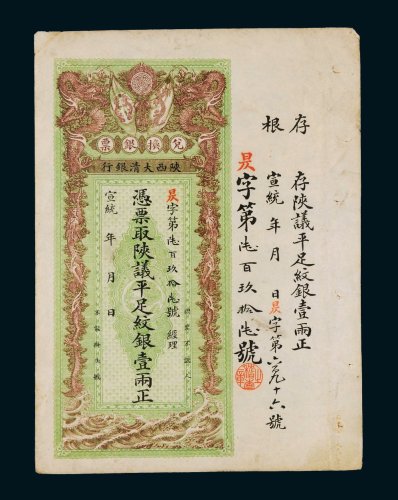 存根
存陝議平足紋銀壹兩正
宣統 年 月 日昃字第六九十六號
昃字第陸百玖拾陸號
兌換銀票
陝西大清銀行
認票不認人
昃字第陸百玖拾陸號 經理
憑票取陝議平足紋銀壹兩正
宣統 年 月 日